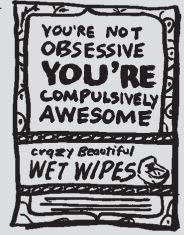 YOU'RE NOT
OBSESSIVE
YOU'RE
COMPULSIVELY
AWESOME
crazy Beautiful
WET WIPES